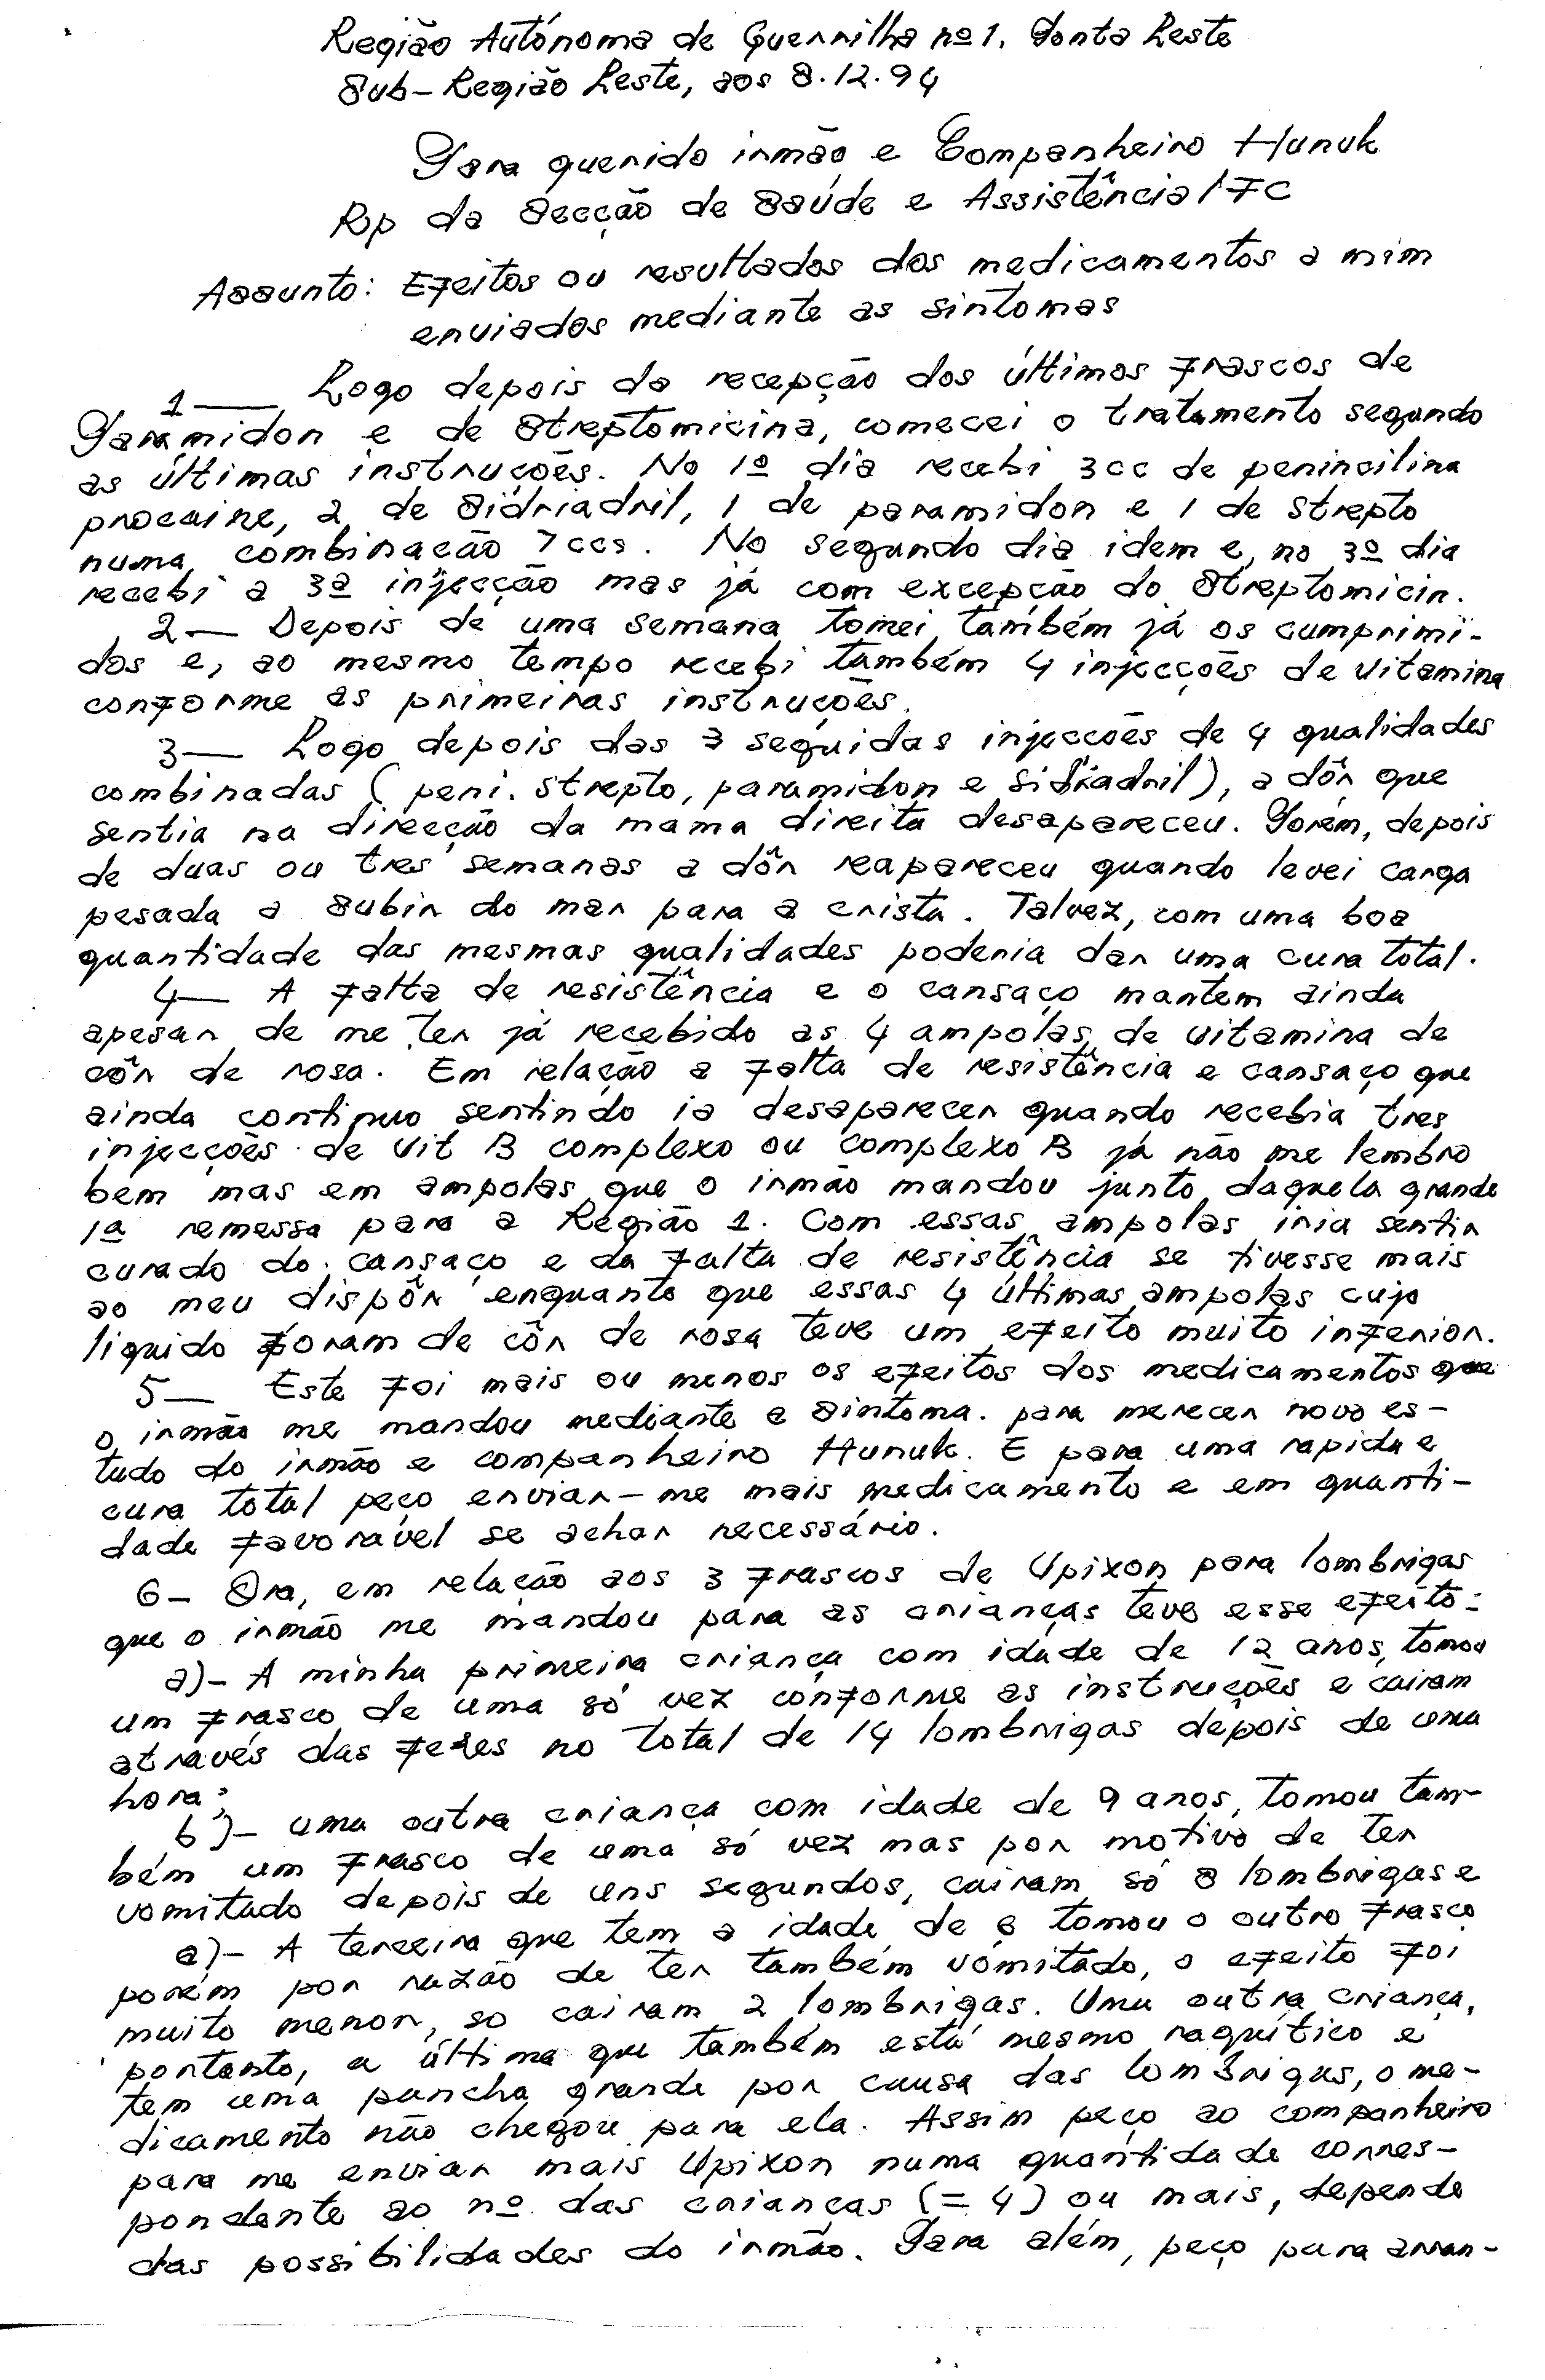 Região Autónoma de Guerrilha nº 1, Ponta Leste
Sub-Região Leste, aos 8.12.94
Para querido irmão e Companheiro Hunuk
Rp da Secção de Saúde e Assistência/FC
Assunto: Efeitos ou resultados dos medicamentos a mim
enviados mediante as sintomas
1 — Logo depois da recepção dos últimos frascos de
Paramidon e de Streptomicina, comecei o tratamento segundo
as últimas instruções. No 1º dia recebi 3cc de penincilina
procaine, 2 de Sidriadril, 1 de paramidon e 1 de Strepto
numa combinação 7 ccs. No segundo dia idem e, no 3º dia
recebi a 3ª injecção mas já com excepção do Streptomicin.
2 — Depois de uma semana tomei também já os cumprimi-
dos e, ao mesmo tempo recebi também 4 injecções de vitamina
conforme as primeiras instruções.
3 — Logo depois das 3 seguidas injecções de 4 qualidades
combinadas (peni. strepto, paramidon e Sidriadril), a dôr que
sentia na direcção da mama direita desapareceu. Porém, depois
de duas ou tres semanas a dôr reapareceu quando levei carga
pesada a subir do mar para a crista. Talvez, com uma boa
quantidade das mesmas qualidades poderia dar uma cura total.
4 — A falta de resistência e o cansaço mantem ainda
apesar de me ter já recebido as 4 ampolas de vitamina de
côr de rosa. Em relação a falta de resistência e cansaço que
ainda continuo sentindo ia desaparecer quando recebia tres
injecções de Vit B complexo ou complexo B já não me lembro
bem mas em ampolas que o irmão mandou junto daquela grande
1ª remessa para a Região 1. Com essas ampolas iria sentir
curado do cansaço e da falta de resistência se tivesse mais
ao meu dispôr enquanto que essas 4 últimas ampolas cujo
liquido foram de côr de rosa teve um efeito muito inferior.
5 — Este foi mais ou menos os efeitos dos medicamentos que
o irmão me mandou mediante a sintoma. para merecer novo es-
tudo do irmão e companheiro Hunuk. E para uma rapida e
cura total peço enviar-me mais medicamento e em quanti-
dade favorável se achar necessário.
6 - Ora, em relação aos 3 frascos de Upixon para lombrigas
que o irmão me mandou para as crianças teve esse efeito:
a) - A minha primeira criança com idade de 12 anos, tomou
um frasco de uma só vez conforme as instruções e cairam
através das fezes no total de 14 lombrigas depois de uma
hora;
b) - Uma outra criança com idade de 9 anos, tomou tam-
bém um frasco de uma só vez mas por motivo de ter
vomitado depois de uns segundos, cairam só 8 lombrigas e
c) - A terceira que tem a idade de 6 tomou o outro frasco
porém por razão de ter também vómitado, o efeito foi
muito menor, so cairam 2 lombrigas. Uma outra criança,
portanto, a última que também está mesmo raquítico e
tem uma pancha grande por causa das lombrigas, o me-
dicamento não chegou para ela. Assim peço ao companheiro
para me enviar mais Upixon numa quantidade corres-
pondente ao nº das crianças (= 4) ou mais, depende
das possibilidades do irmão. Para além, peço para arran-